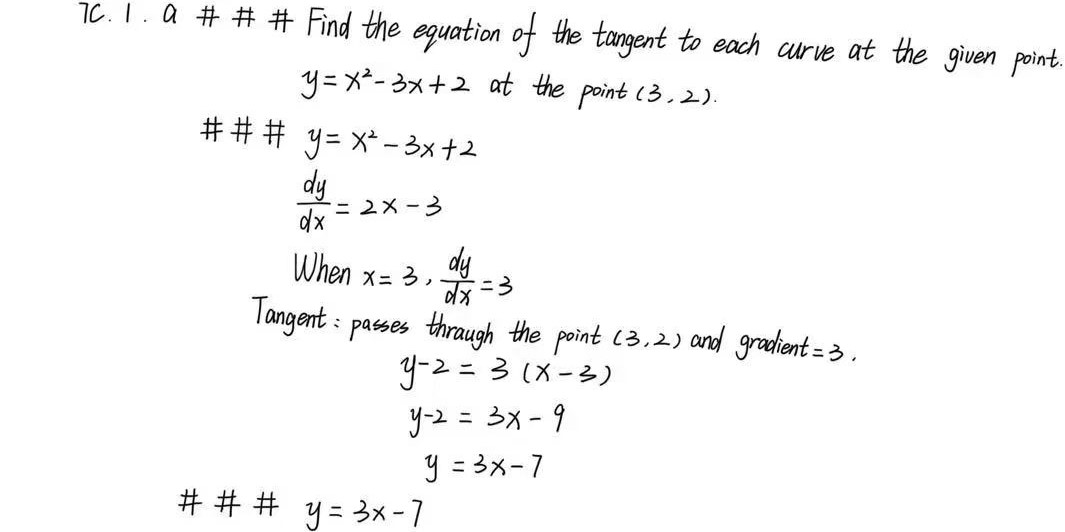 7C. 1. a # # # Find the equation of the tangent to each curve at the given point.
y = x² - 3x + 2 at the point (3, 2).
# # # y = x² - 3x + 2
dy/dx = 2x - 3
When x = 3, dy/dx = 3
Tangent: passes through the point (3, 2) and gradient = 3.
y - 2 = 3 (x - 3)
y - 2 = 3x - 9
y = 3x - 7
# # # y = 3x - 7